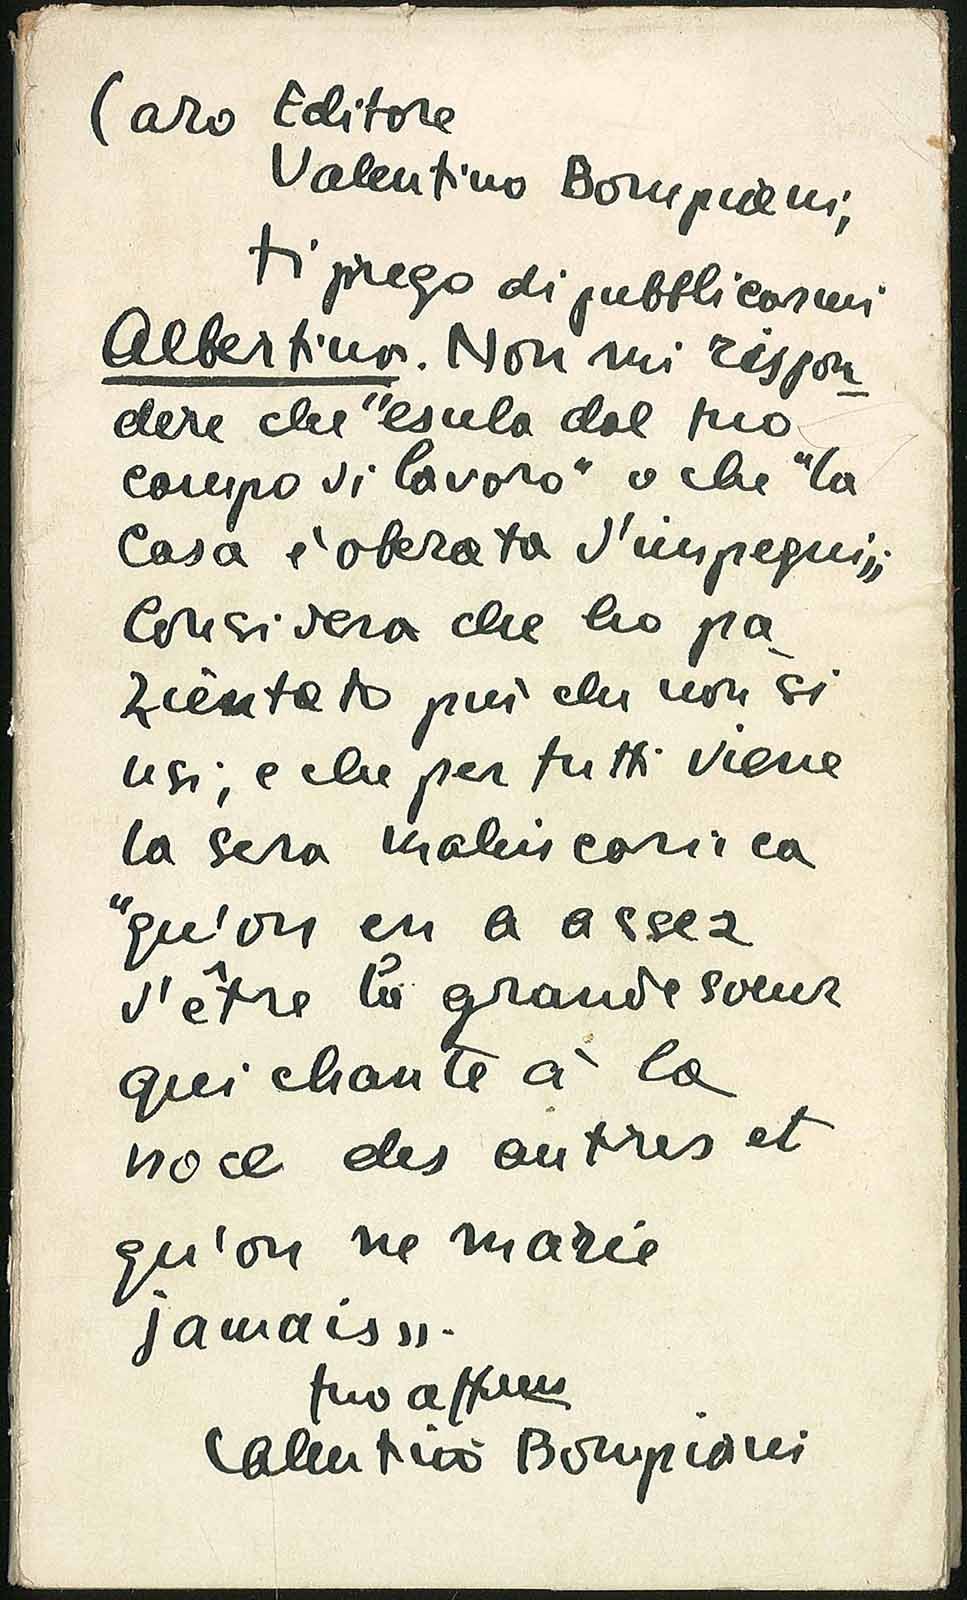 Caro Editore
Valentino Bompiani,
ti prego di pubblicarmi
Albertina. Non mi rispon
dere che "esula dal tuo
campo di lavoro" o che "la
Casa è oberata d'impegni";
Considera che ho pa
zientato più che non si
usi; e che per tutti viene
la sera malinconica
"qu'on en a assez
d'être la grande soeur
qui chante à la
noce des autres et
qu'on ne marie
jamais".
tuo affmo
Valentino Bompiani